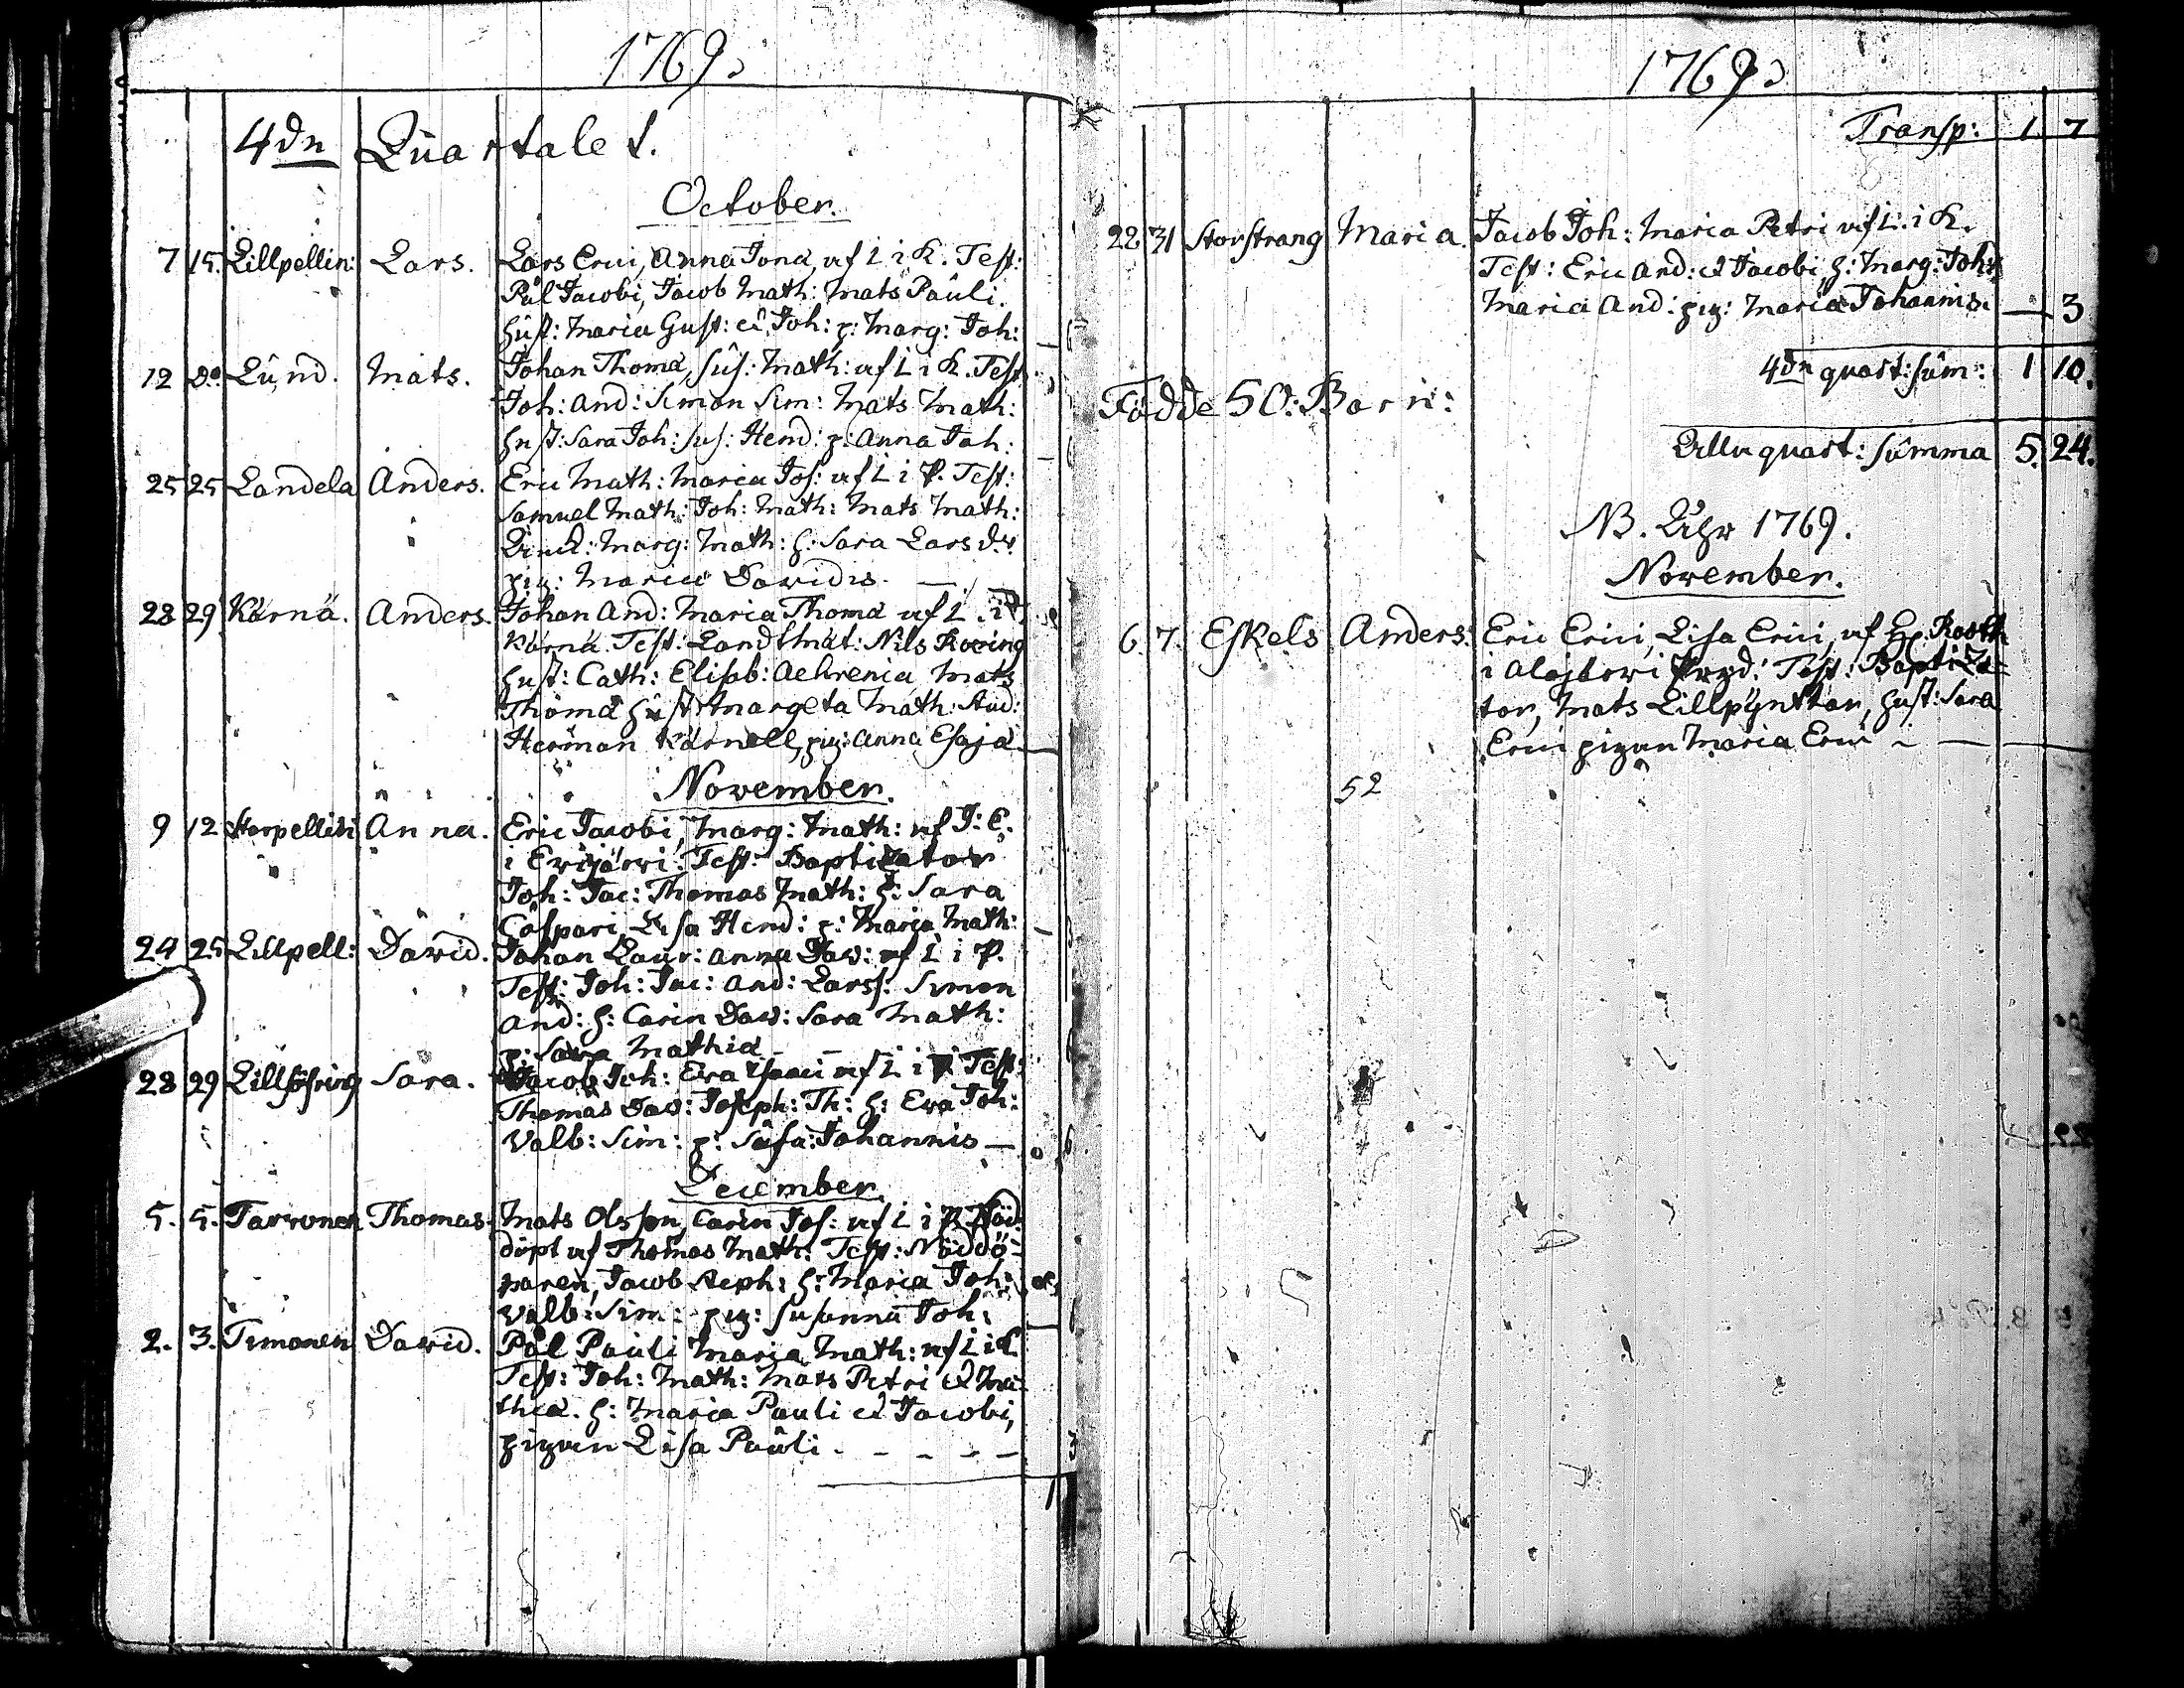 1769.
4dn Quartalet.
October.
7 15. Lillpellin: Lars. Lars Erici, Anna Jonæ, af L i K. Test:
Pål Jacobi, Jacob Math: Mats Pauli.
hust: Maria Gust: et Joh: p: Marg: Joh:
12 do. Lund. Mats. Johan Thomæ, Sus: Math: af L i K. Test
Joh: And: Simon Sim: Mats Math:
hust: Sara Joh: Sus: Hend: p: Anna Joh:
25 25 Landela Anders. Eric Math: Maria Jos: af L i P. Test:
Samuel Math: Joh: Math: Mats Math:
Marg: Math: h: Sara Larsdr.
pig: Maria Davidis. —
28 29 Kärnä. Anders. Johan And: Maria Thomæ af L. i
Kärnä. Test: Landtmät: Nils Roering
hust: Cath: Elisab: Aehrenia Mats
Thomæ hust: Margeta Math: Stud:
Herman Kärnell, pig: Anna Esajæ
November.
9 12 Storpellin Anna. Eric Jacobi, Marg: Math: af J: E.
i Evijärvi. Test: Baptizator
Joh: Jac: Thomas Math: h: Sara
Caspari, Lisa Hend: p: Maria Math:
24 25 Lillpell: David. Johan Laur: Anna Dav: af L i P.
Test: Joh: Jac: And: Larss: Simon
And: h: Carin Dav: Sara Math:
p: Sara Mathiæ
28 29 Sara. Jacob Joh: Eva Isaaci af L i P Test:
Thomas Dav: Joseph: Th: h: Eva Joh:
Valb: Sim: p: Johannis —
December.
5. 5. Tarvonen Thomas. Mats Olsson, Carin Jos: af L i P. Nöd
döpt af Thomas Math: Test: Nöddö-
paren, Jacob Steph: h: Maria Joh:
Valb: Sim: pig: Susanna Joh:
2. 3. Timonen David. Pål Pauli Maria Math: af L i K
Test: Joh: Math: Mats Petri et Ma
thiæ. h: Maria Pauli et Jacobi,
pigan Lisa Pauli. - - - -
1769.
Transp: 1 7
22 31 Storstrang Maria. Jacob Joh: Maria Petri af L: i K.
Test: Eric And: et Jacobi, h: Marg: Joh:
Maria And: pig: Maria Johannis. — 3
4dn quart: sum: 1 10.
Födde 50: Barn:
Alla quart: summa 5. 24.
NB. Åhr 1769.
November.
6. 7. Eskels Anders. Eric Erici, Lisa Erici, af
i Alajärvi Test: Baptiza-
tor, Mats Lillpyntter, hust: Sara
Erici pigan Maria Erici - — —
52